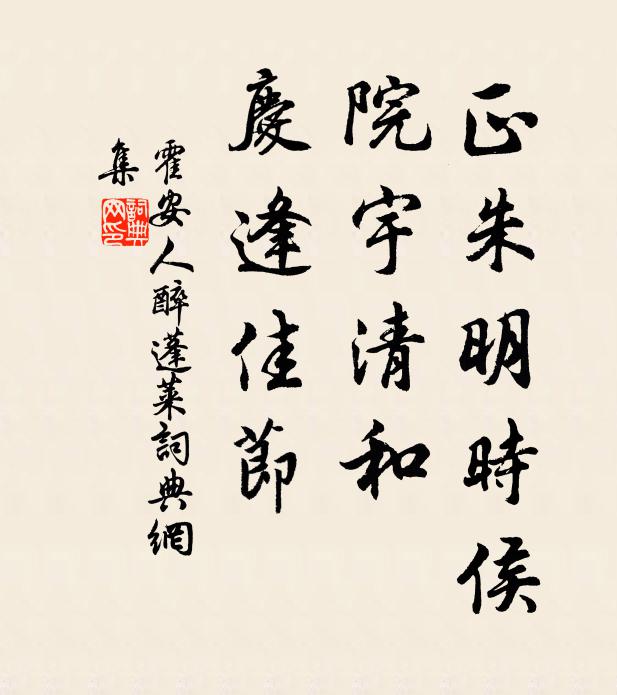 正朱明時候
院宇清和
慶逢佳節
霍安人醉蓬萊詞典網
集
詞典
网印